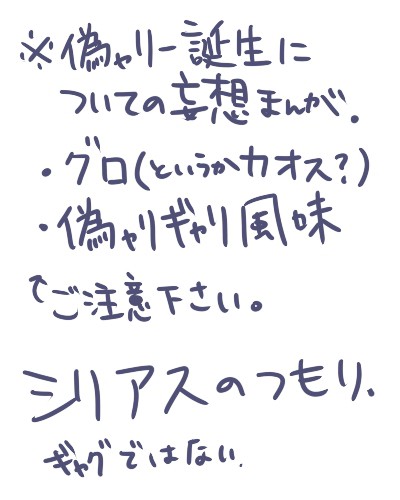 ※偽ャリー誕生に
ついての妄想まんが。
・グロ(というかカオス?)
・偽ャリギャリ風味
↑ご注意下さい。
シリアスのつもり、
ギャグではない、